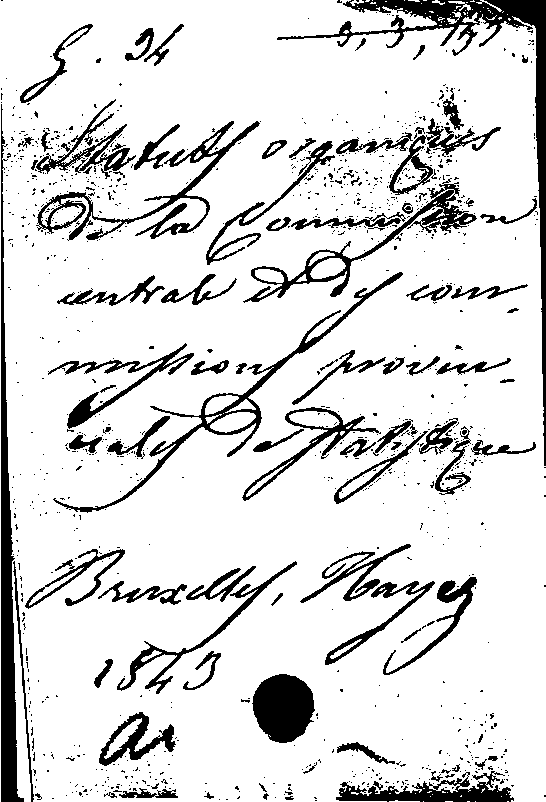 G. 34 3, 3, 137
Statuts organiques
de la Commission
centrale et des com-
missions provin-
ciales de statistique
Bruxelles, Hayez
1843